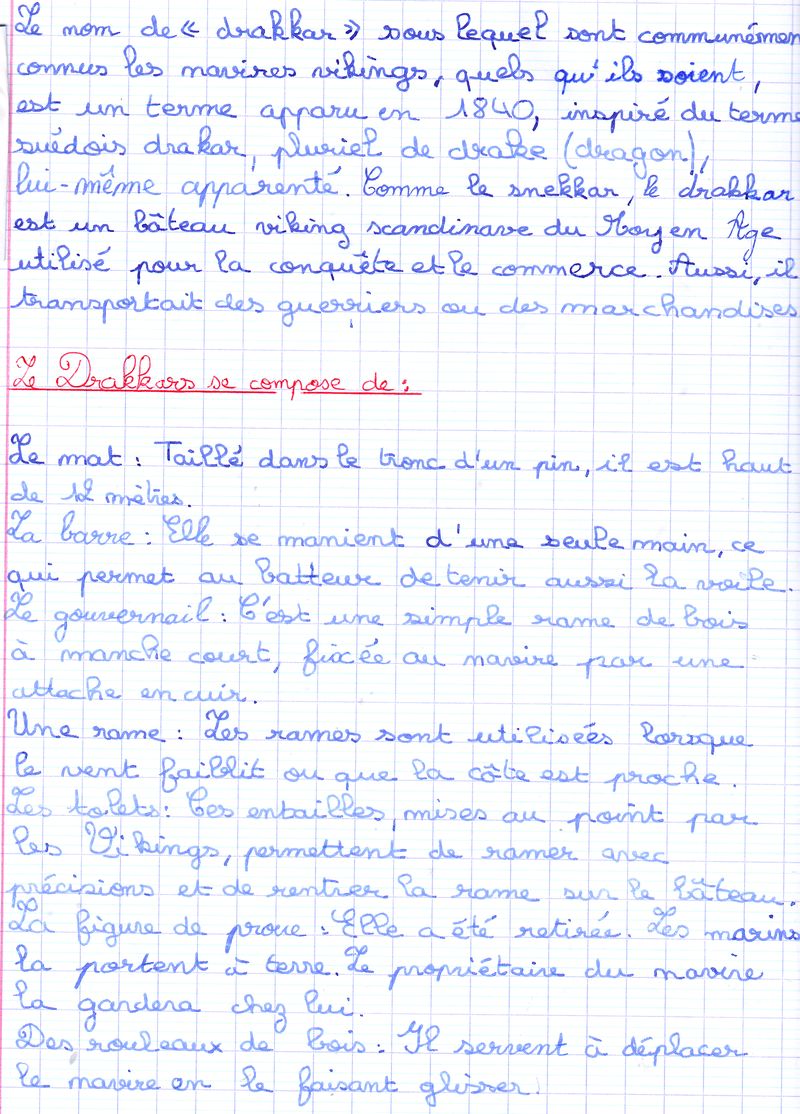 Le nom de « drakkar » sous lequel sont communémen
connus les navires vikings, quels qu'ils soient,
est un terme apparu en 1840, inspiré du terme
suédois drakar, pluriel de drake (dragon),
lui-même apparenté. Comme le snekkar, le drakkar
est un bâteau viking scandinave du Moyen Age
utilisé pour la conquête et le commerce. Aussi, il
transportait des guerriers ou des marchandises
Le Drakkars se compose de :
Le mat : Taillé dans le tronc d'un pin, il est haut
de 12 mètres.
La barre : Elle se manient d'une seule main, ce
qui permet au batteur de tenir aussi la voile.
Le gouvernail : C'est une simple rame de bois
à manche court, fixée au navire par une
attache en cuir.
Une rame : Les rames sont utiliseés lorsque
le vent faiblit ou que la côte est proche.
Les tolets : Ces entailles, mises au point par
les Vikings, permettent de ramer avec
précisions et de rentrer la rame sur le bâteau.
La figure de proue : Elle a été retirée. Les marins
la portent à terre. Le propriétaire du navire
la gardera chez lui.
Des rouleaux de bois : Il servent à déplacer
le navire en le faisant glisser.